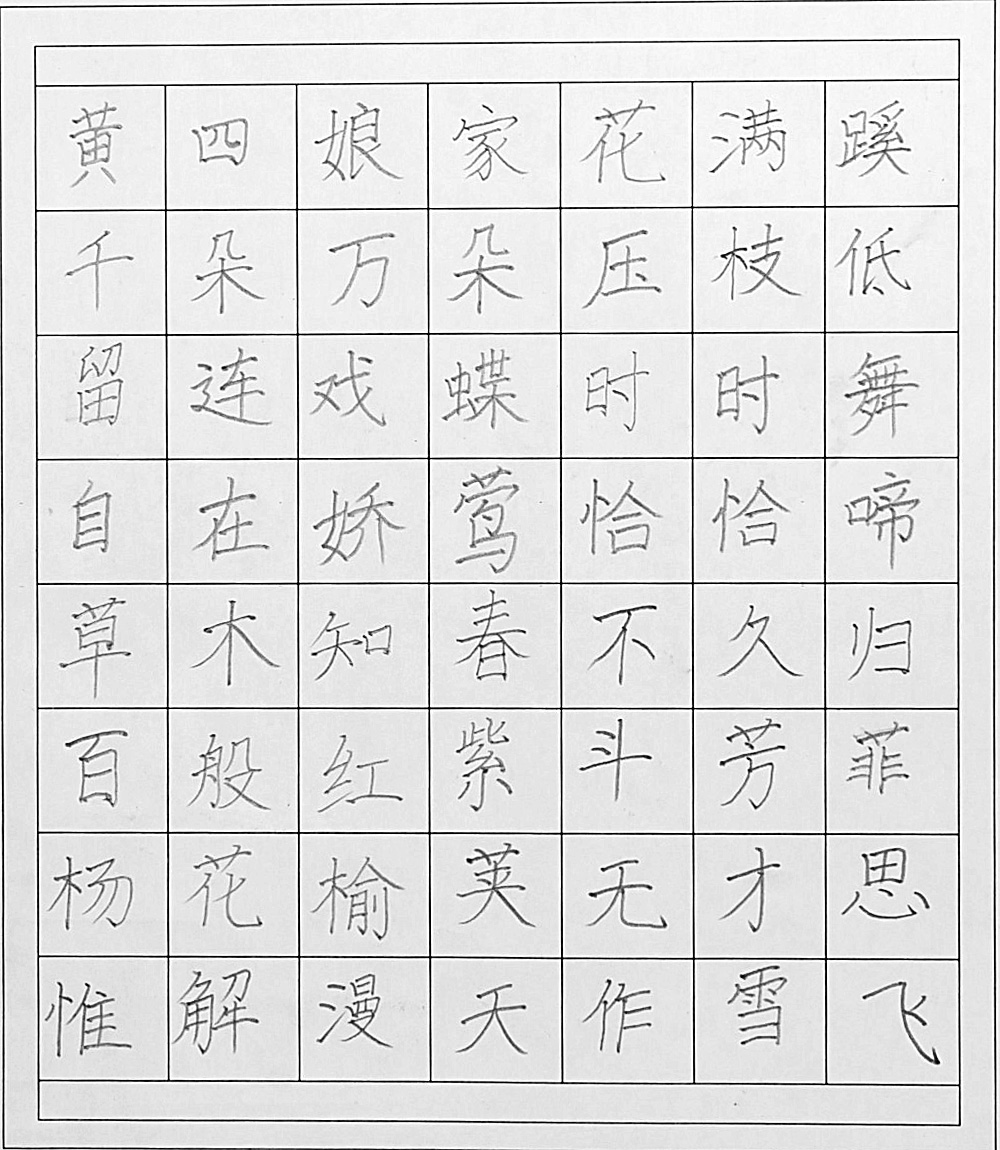 黄四娘家花满蹊
千朵万朵压枝低
留连戏蝶时时舞
自在娇莺恰恰啼
草木知春不久归
百般红紫斗芳菲
杨花榆荚无才思
惟解漫天作雪飞